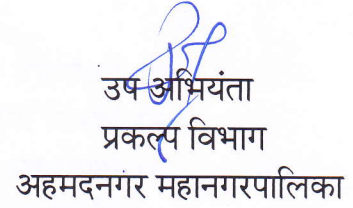 उप अभियंता
प्रकल्प विभाग
अहमदनगर महानगरपालिका